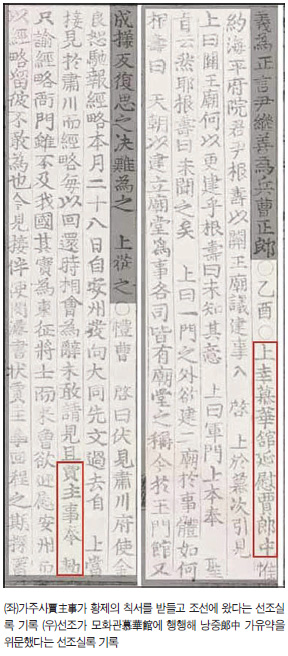 義為正言尹繼善為兵曹正郎○乙酉○上幸慕華舘延慰賈郎中惟
約海平府院君尹根壽以關王廟議建事入 啓 上於幕次引見
上曰關王廟何以更建乎根壽曰未知其意 上曰軍門上本奉 聖
旨云然耶根壽曰未聞之矣 上曰一門之外欲建二廟於事體如何
根壽曰 天朝以建立廟堂為事各司皆有廟堂之稱今於王門館又
成擾反復思之決難為之 上從之○禮曹 啓曰伏見肅川府使金
良恕馳報經略本月二十八日自安州發向大同先文過去自 上當
接見於肅川而經略每以回還時相會為辭未敢請見且賈主事奉 勅
只諭經略衙門雖不及我國其實為東征將士而來曾欲迎慰安州而
以經略留彼不敢為也今見接伴使 書狀賈主事回程之期
(좌)가주사賈主事가 황제의 칙서를 받들고 조선에 왔다는 선조실
록 기록 (우)선조가 모화관慕華館에 행행해 낭중郎中 가유약을
위문했다는 선조실록 기록